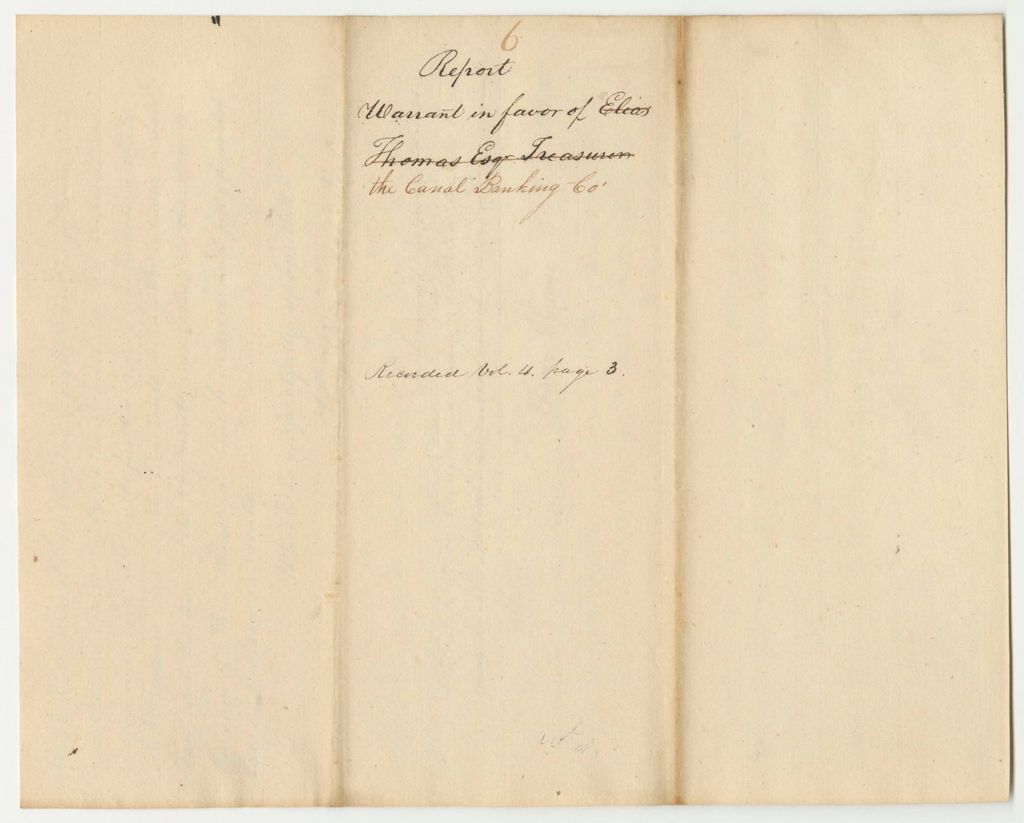 6
Report
Warrant in favor of Elias
Thomas Esqr Treasurer
the Canal Banking Co.
Recorded Vol. 4. page 3.